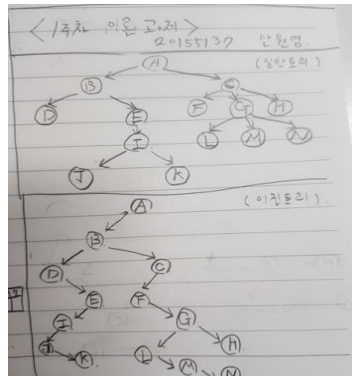 <1주차 이론 과제>
20155137 안원영.
(일반트리)
A
B C
D E F G H
I L M N
J K
(이진트리)
A
B
D C
E F
I G
J K H
L M N